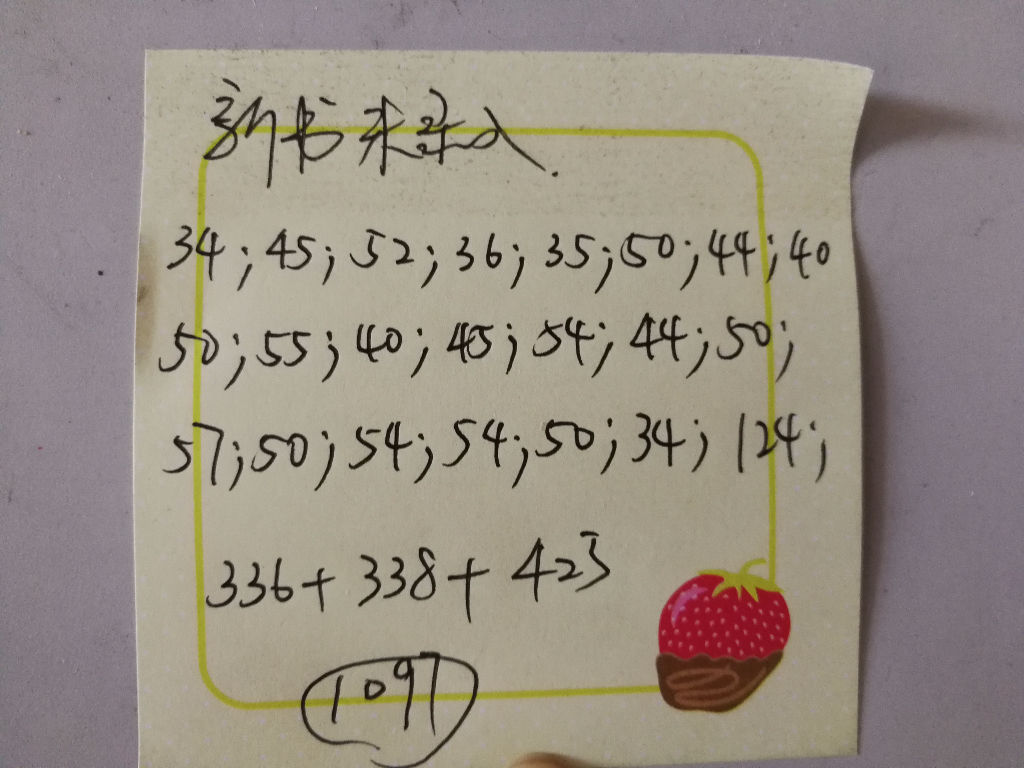 新书未录入.
34;45;52;36;35;50;44;40
50;55;40;45;54;44;50;
57;50;54;54;50;34;124;
336+338+423
1097